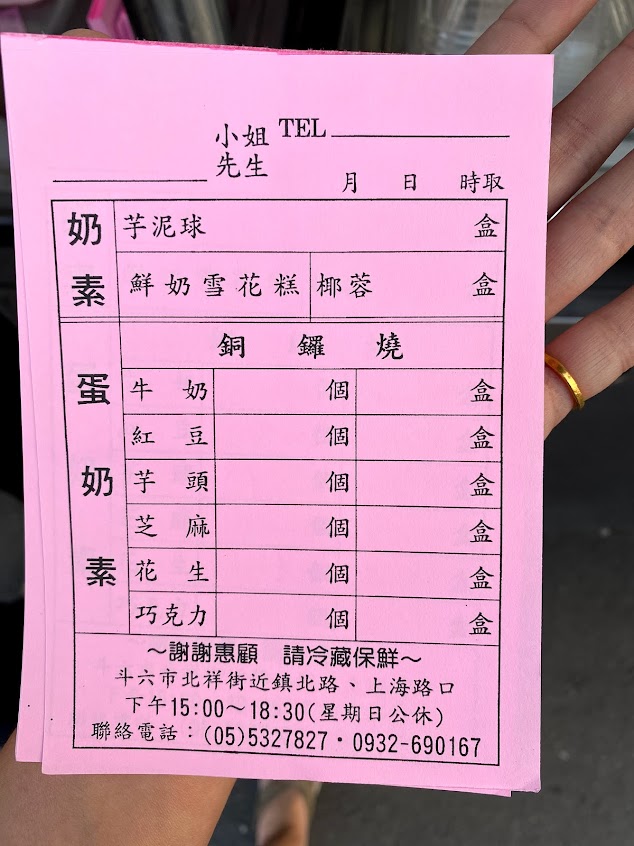 小姐 TEL
先生
月 日 時取
奶素
芋泥球 盒
鮮奶雪花糕 椰蓉 盒
蛋奶素
銅鑼燒
牛奶 個 盒
紅豆 個 盒
芋頭 個 盒
芝麻 個 盒
花生 個 盒
巧克力 個 盒
～謝謝惠顧 請冷藏保鮮～
斗六市北祥街近鎮北路、上海路口
下午15:00～18:30(星期日公休)
聯絡電話：(05)5327827・0932-690167